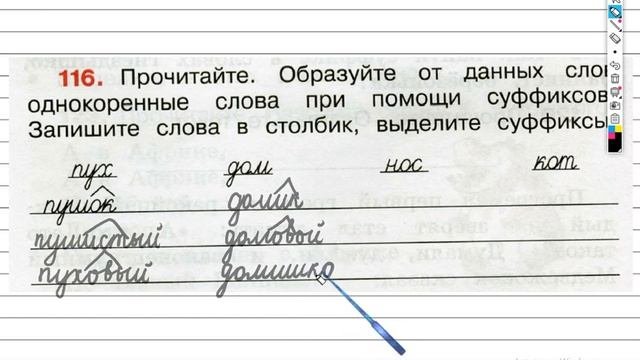 116. Прочитайте. Образуйте от данных слов
однокоренные слова при помощи суффиксов.
Запишите слова в столбик, выделите суффиксы.
пух дом нос кот
пушок домик
пушистый домовый
пуховый домишко